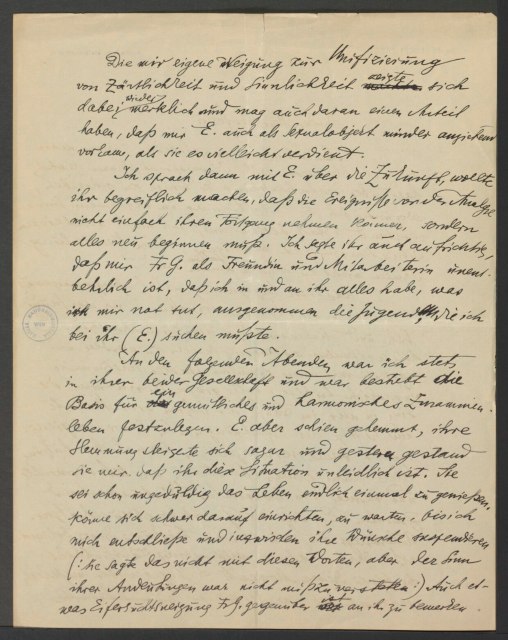 Die mir eigene Neigung zur Unifizierung
von Zärtlichkeit und Sinnlichkeit zeigte sich
dabei wieder merklich und mag auch daran einen Anteil
haben, daß mir E. auch als Sexualobjekt minder anziehend
vorkam, als sie es vielleicht verdient.
Ich sprach dann mit E. über die Zukunft, wollte
ihr begreiflich machen, daß die Ereignisse vor der Analyse
nicht einfach ihren Fortgang nehmen können, sondern
alles neu beginnen muß. Ich sagte ihr auch aufrichtig,
daß mir Fr G. als Freundin und Mitarbeiterin unent-
behrlich ist, daß ich in und an ihr alles habe, was
mir not tut, ausgenommen die Jugend, die ich
bei ihr (E.) suchen müßte.
An den folgenden Abenden war ich stets
in ihrer beider Gesellschaft und war bestrebt die
Basis für ein gemütliches und harmonisches Zusammen-
leben festzulegen. E. aber schien gehemmt, ihre
Hemmung steigerte sich sogar und gestern gestand
sie mir, daß ihr diese Situation unleidlich ist. Sie
sei schon ungeduldig das Leben endlich einmal zu genießen,
könne sich schwer darauf einrichten, zu warten, bis ich
mich entschließe und inzwischen ihre Wünsche suspendieren
(: sie sagte das nicht mit diesen Worten, aber der Sinn
ihrer Andeutungen war nicht mißzuverstehen :) Auch et-
was Eifersuchtsneigung Fr G. gegenüber ist an ihr zu bemerken